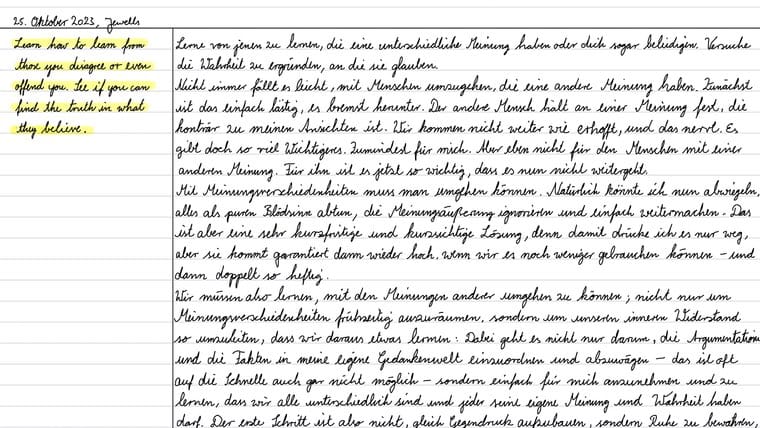 25. Oktober 2023, Jewells
Learn how to learn from
those you disagree or even
offend you. See if you can
find the truth in what
they believe.
Lerne von jenen zu lernen, die eine unterschiedliche Meinung haben oder dich sogar beleidigen. Versuche
die Wahrheit zu ergründen, an die sie glauben.
Nicht immer fällt es leicht, mit Menschen umzugehen, die eine andere Meinung haben. Zunächst
ist das einfach lästig, es bremst herunter. Der andere Mensch hält an einer Meinung fest, die
konträr zu meinen Ansichten ist. Wir kommen nicht weiter wie erhofft, und das nervt. Es
gibt doch so viel Wichtigeres. Zumindest für mich. Aber eben nicht für den Menschen mit einer
anderen Meinung. Für ihn ist es jetzt so wichtig, dass es nun nicht weitergeht.
Mit Meinungsverschiedenheiten muss man umgehen können. Natürlich könnte ich nun abwiegeln,
alles als puren Blödsinn abtun, die Meinungsäußerung ignorieren und einfach weitermachen. Das
ist aber eine sehr kurzfristige und kurzsichtige Lösung, denn damit drücke ich es nur weg,
aber sie kommt garantiert dann wieder hoch, wenn wir es noch weniger gebrauchen können – und
dann doppelt so heftig.
Wir müssen also lernen, mit den Meinungen anderer umgehen zu können; nicht nur um
Meinungsverschiedenheiten frühzeitig auszuräumen, sondern um unseren inneren Widerstand
so umzuleiten, dass wir daraus etwas lernen: Dabei geht es nicht nur darum, die Argumentation
und die Fakten in meine eigene Gedankenwelt einzuordnen und abzuwägen – das ist oft
auf die Schnelle auch gar nicht möglich – sondern einfach für mich anzunehmen und zu
lernen, dass wir alle unterschiedlich sind und jeder seine eigene Meinung und Wahrheit haben
darf. Der erste Schritt ist also nicht, gleich Gegendruck aufzubauen, sondern Ruhe zu bewahren,